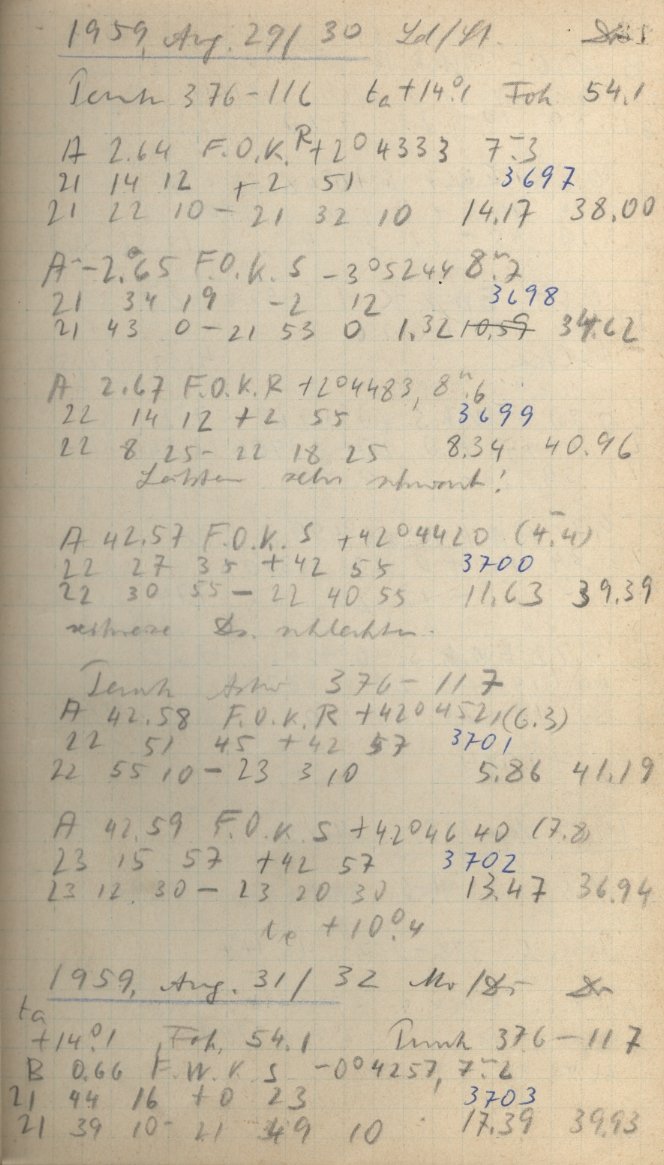 1959, Aug. 29/30
376-116 ta +14°.1 Fok 54.1
A 2.64 F.O.K. R +2°4333 7m.3
21 14 12 +2 51 3697
21 22 10 - 21 32 10 14.17 38.00
A -2.65 F.O.K. S -3°5244 8m.7
21 34 19 -2 12 3698
21 43 0 - 21 53 0 1.32 10.59 34.62
A 2.67 F.O.K. R +2°4483, 8m.6
22 14 12 +2 55 3699
22 8 25 - 22 18 25 8.34 40.96
sehr schwach!
A 42.57 F.O.K. S +42°4420 (4.4)
22 27 35 +42 55 3700
22 30 55 - 22 40 55 11.63 39.39
376-117
A 42.58 F.O.K. R +42°4521 (6.3)
22 51 45 +42 57 3701
22 55 10 - 23 3 10 5.86 41.19
A 42.59 F.O.K. S +42°4640 (7.8)
23 15 57 +42 57 3702
23 12 30 - 23 20 30 13.47 36.94
te +10°.4
1959, Aug. 31/32
ta
+14°.1 Fok. 54.1 376-117
B 0.66 F.W.K. S -0°4257, 7m.2
21 44 16 +0 23 3703
21 39 10 - 21 49 10 17.39 39.93